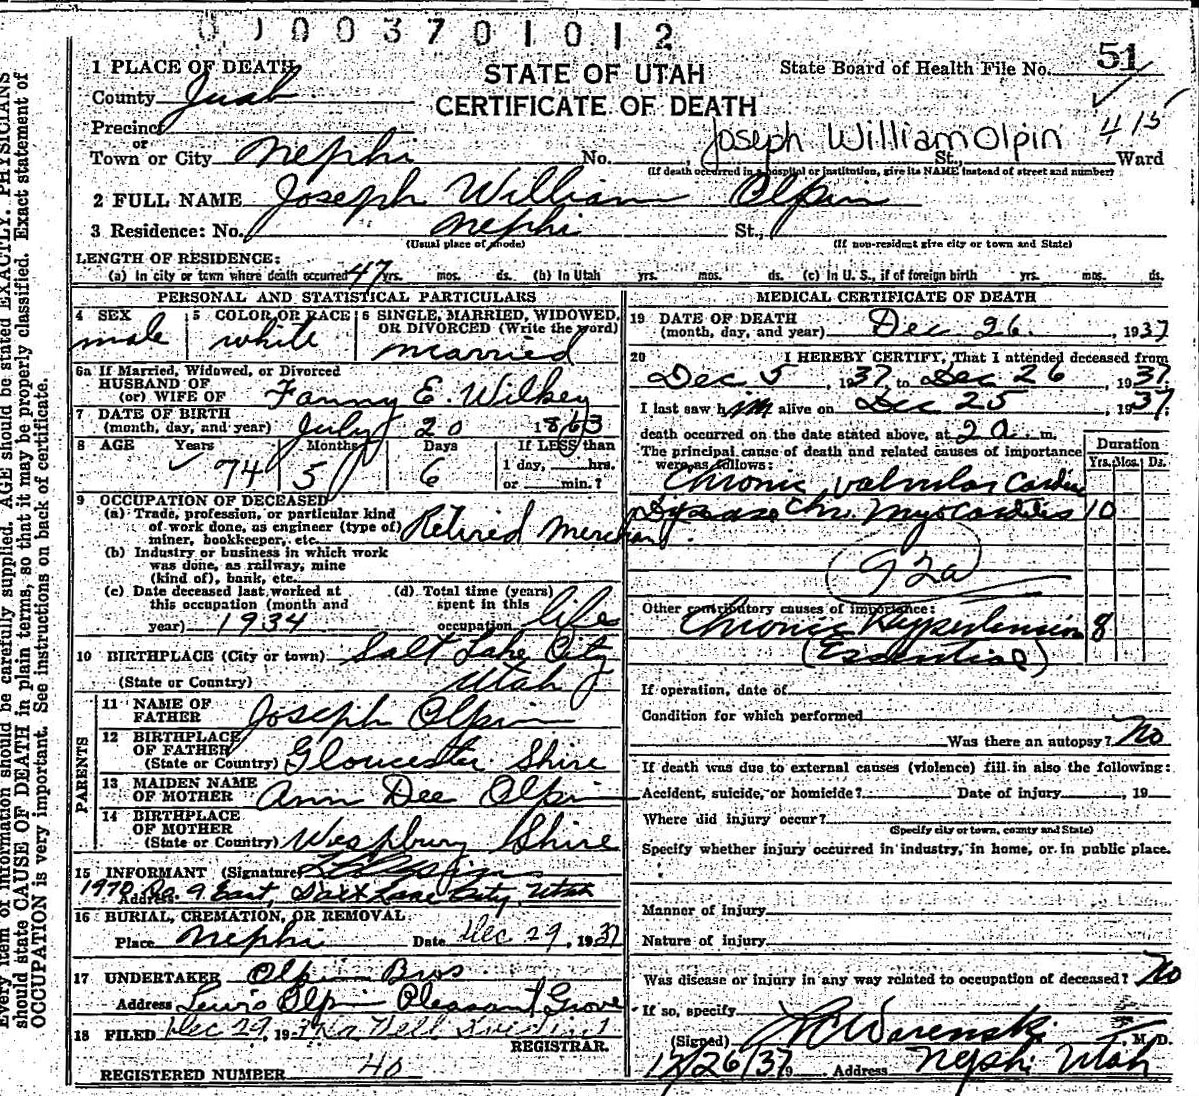 0003701012
51
1 PLACE OF DEATH
STATE OF UTAH
State Board of Health File No.
County Juab
CERTIFICATE OF DEATH
Precinct
or
Joseph William Olpin 415
Town or City Nephi No. St., Ward
(If death occurred in a hospital or institution, give its NAME instead of street and number)
2 FULL NAME Joseph William Olpin
3 Residence: No. Nephi St.,
(Usual place of abode) (If non-resident give city or town and State)
LENGTH OF RESIDENCE:
(a) In city or town where death occurred 47 yrs. mos. ds. (b) In Utah yrs. mos. ds. (c) In U. S., if of foreign birth yrs. mos. ds.
PERSONAL AND STATISTICAL PARTICULARS
4 SEX 5 COLOR OR RACE 6 SINGLE, MARRIED, WIDOWED, OR DIVORCED (Write the word)
male white married
6a If Married, Widowed, or Divorced
HUSBAND OF
(or) WIFE OF Fanny E. Wilkey
7 DATE OF BIRTH
(month, day, and year) July 20 1863
8 AGE Years Months Days If LESS than
74 5 6 1 day, hrs.
or min.?
9 OCCUPATION OF DECEASED
(a) Trade, profession, or particular kind
of work done, as engineer (type of)
miner, bookkeeper, etc. Retired Merchant.
(b) Industry or business in which work
was done, as railway, mine
(kind of), bank, etc.
(c) Date deceased last worked at
this occupation (month and
year) 1934
(d) Total time (years)
spent in this
occupation life
10 BIRTHPLACE (City or town) Salt Lake City
(State or Country) Utah
PARENTS
11 NAME OF
FATHER Joseph Olpin
12 BIRTHPLACE
OF FATHER
(State or Country) Gloucester Shire
13 MAIDEN NAME
OF MOTHER Ann Dee Olpin
14 BIRTHPLACE
OF MOTHER
(State or Country) Wespbury Shire
15 INFORMANT (Signature)
Address 1970 So. 9 East, Salt Lake City, Utah
16 BURIAL, CREMATION, OR REMOVAL
Place Nephi Date Dec 29, 1937
17 UNDERTAKER Olpin Bros
Address Lewis Olpin Pleasant Grove
18 FILED Dec 29, 193
REGISTRAR.
REGISTERED NUMBER 40
MEDICAL CERTIFICATE OF DEATH
19 DATE OF DEATH
(month, day, and year) Dec 26. , 1937
20 I HEREBY CERTIFY, That I attended deceased from
Dec 5 , 1937, to Dec 26 , 1937.
I last saw him alive on Dec 25 , 1937.
death occurred on the date stated above, at 2 a. m.
The principal cause of death and related causes of importance
were as follows:
Duration
Yrs. Mos. Ds.
Chronic valvular Cardiac
Disease Chr. Myocarditis 10
92a
Other contributory causes of importance:
Chronic Hypertension 8
(Essential)
If operation, date of
Condition for which performed
Was there an autopsy? No
If death was due to external causes (violence) fill in also the following:
Accident, suicide, or homicide? Date of injury , 19
Where did injury occur?
(Specify city or town, county and State)
Specify whether injury occurred in industry, in home, or in public place.
Manner of injury
Nature of injury
Was disease or injury in any way related to occupation of deceased? No
If so, specify
(Signed) Warenski , M. D.
12/26/37 9 Address Nephi Utah
Every item of information should be carefully supplied. AGE should be stated EXACTLY. PHYSICIANS
should state CAUSE OF DEATH in plain terms, so that it may be properly classified. Exact statement of
OCCUPATION is very important. See instructions on back of certificate.